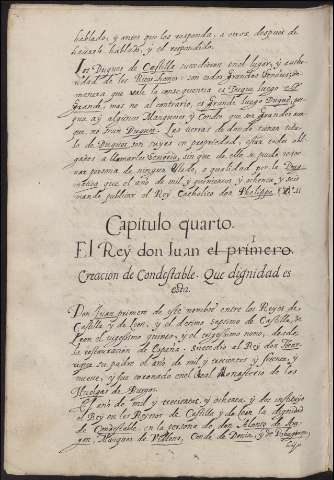 hablado, y antes que les responda, a otros despues de
hauerle hablado, y el respondido.
Los Duques de Castilla sucedieron en el lugar, y auctori-
dad de los Ricos homes: son todos Grandes Señores, de
manera que vale la consequencia es Duque luego es
Grande, mas no al contrario, es Grande luego Duque, por-
que ay algunos Marqueses y Condes que son Grandes aun-
que no sean Duques. Las tierras de donde tienen titu-
lo de Duques son suyas en propriedad, estan todos obli-
gados a llamarles Señoria, sin que de ello se pueda escu-
sar persona de ningun estado, o qualidad por la Prag-
matica que el año de mil y quinientos y ochenta y seis
mando publicar el Rey Catholico don Phelippe
Capitulo quarto.
El Rey don Iuan el primero.
Creacion de Condestable. Que dignidad es
esta.
Don Iuan primero de este nombre entre los Reyes de
Castilla y de Leon, y el decimo septimo de Castilla, de
Leon el vigessimo quinto, y el vigessimo nono, desde
la restauracion de España. Sucedio al Rey don Hen-
rique su padre el año de mil y trecientos y setenta, y
nueve, y fue coronado en el Real Monasterio de las
Huelgas de Burgos.
El año de mil y trecientos, y ochenta, y dos instituyo
el Rey en los Reynos de Castilla y de Leon la dignidad
de Condestable, en la persona de don Alonso de Ara-
gon, Marques de Villena, Conde de Denia, y de Ribagorça,
hijo